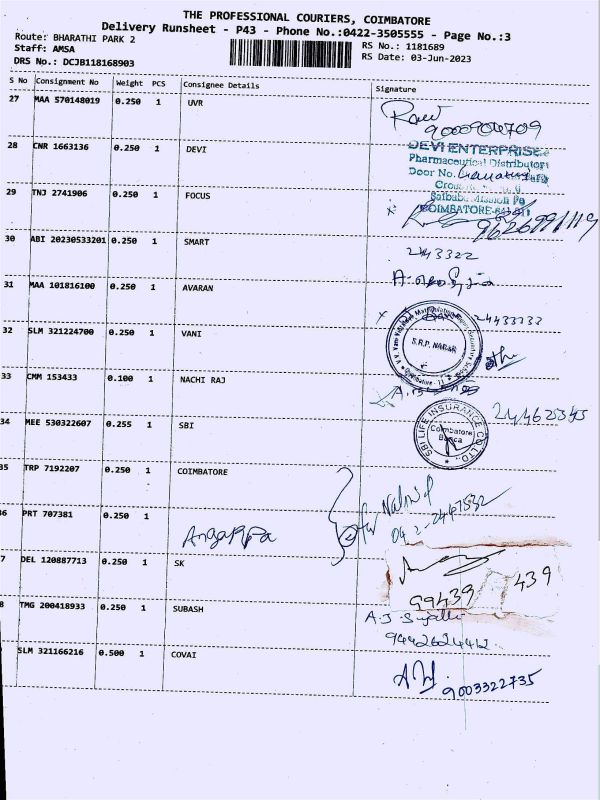 THE PROFESSIONAL COURIERS, COIMBATORE
Delivery Runsheet - P43 - Phone No.:0422-3505555 - Page No.:3
Route: BHARATHI PARK 2
RS No.: 1181689
Staff: AMSA
RS Date: 03-Jun-2023
DRS No.: DCJB118168903
S No Consignment No Weight PCS Consignee Details Signature
27 MAA 570148019 0.250 1 UVR
28 CNR 1663136 0.250 1 DEVI
DEVI ENTERPRISE
Pharmaceutical Distributors
Door No.
29 TNJ 2741906 0.250 1 FOCUS
Saibaba Mission Po
COIMBATORE-641 011
9626991119
30 ABI 20230533201 0.250 1 SMART
243322
31 MAA 101816100 0.250 1 AVARAN
32 SLM 321224700 0.250 1 VANI
S.R.P. NAGAR
33 CMM 153433 0.100 1 NACHI RAJ
34 MEE 530322607 0.255 1 SBI
SBI LIFE INSURANCE CO LTD
Coimbatore
Banca
35 TRP 7192207 0.250 1 COIMBATORE
36 PRT 707381 0.250 1
Angappa
7 DEL 120887713 0.250 1 SK
99439 439
8 TMG 200418933 0.250 1 SUBASH
9442624412
SLM 321166216 0.500 1 COVAI
9003322735